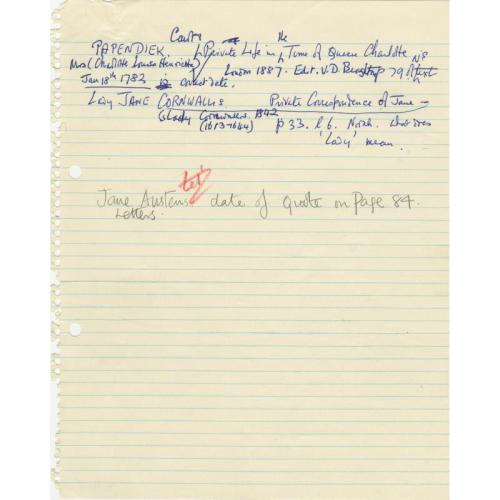 Court the
PAPENDIEK. Private Life in Time of Queen Charlotte
Mrs (Charlotte Louisa Henrietta) London 1887. Edit. V.D. p 79
Jan 18th 1782 is correct date.
Lady JANE CORNWALLIS Private Correspondence of Jane –
Lady Cornwallis. 1842
(1613–1644) p 33. l 6. Norah. does
'lady' mean.
Jane Austens date of Quote on Page 84.
Letters.